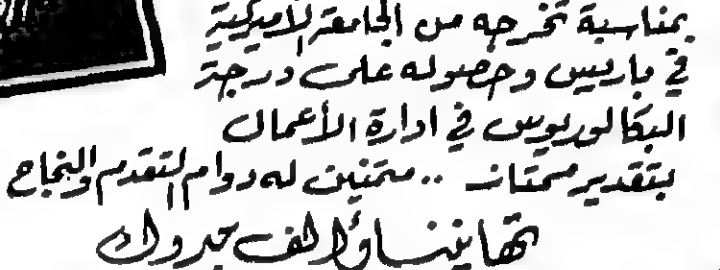 بمناسبة تخرجه من الجامعة الأميركية
في باريس وحصوله على درجة
البكالوريوس في ادارة الأعمال
بتقدير ممتاز .. متمنين له دوام التقدم والنجاح
تهانينا وألف مبروك